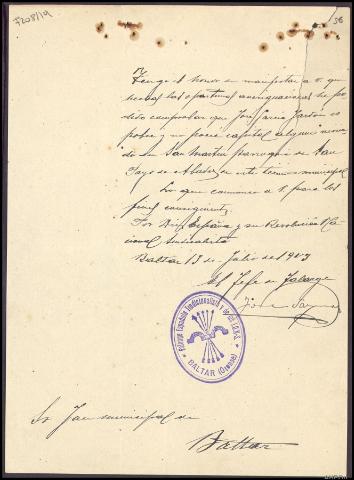 7208/19
36
Tengo el honor de manifestar a V. que
hechas las oportunas averiguaciones he po-
dido comprobar que José García
pobre y no posee capital alguno
do en San Martín parroquia de San
Payo de Abades, en este término municipal
Lo que comunico a V. para los
fines consiguientes.
Por Dios, España y su Revolución Na-
cional Sindicalista
Baltar 13 de Julio de 19
El Jefe de Falange
José
Falange Española Tradicionalista y de las J.O.N.S.
BALTAR (Orense)
Sr Juez municipal de
Baltar